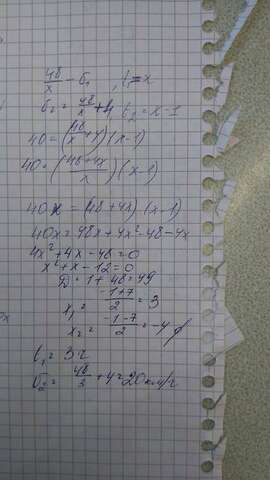 48/x - v₁, t₁ = x
v₂ = 48/x + 4 t₂ = x - 1
40 = (48/x + 4)(x - 1)
40 = ((48 + 4x)/x)(x - 1)
40x = (48 + 4x)(x - 1)
40x = 48x + 4x² - 48 - 4x
4x² + 4x - 48 = 0
x² + x - 12 = 0
D = 1 + 48 = 49
x₁ = (-1 + 7)/2 = 3
x₂ = (-1 - 7)/2 = -4
t₁ = 3 ч
v₂ = 48/3 + 4 = 20 км/ч